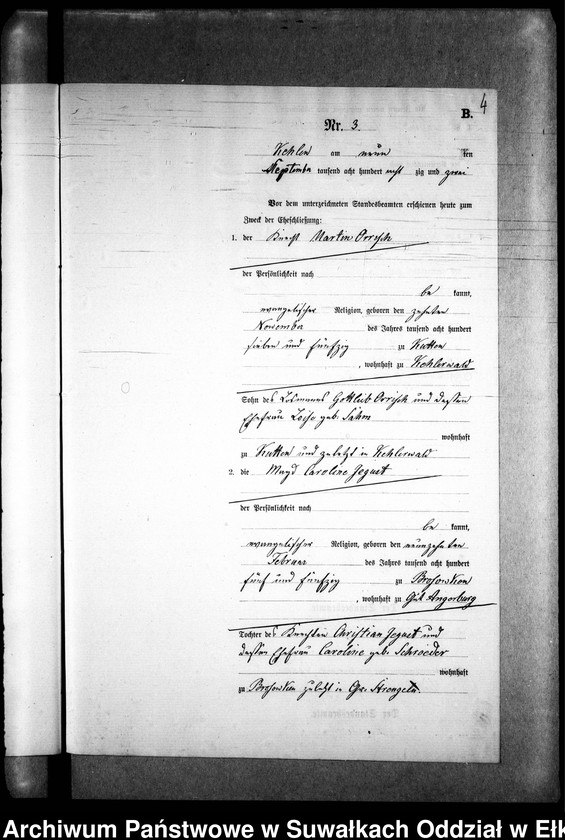 4
B.
Nr. 3.
Kehlen am neun ten
September tausend acht hundert acht zig und zwei
Vor dem unterzeichneten Standesbeamten erschienen heute zum
Zweck der Eheschließung:
1. der Knecht Martin Orrisch
der Persönlichkeit nach
be kannt,
evangelischer Religion, geboren den zehnten
November des Jahres tausend acht hundert
sieben und fünfzig zu Kutten
, wohnhaft zu Kehlerwald
Sohn des Losmanns Gottlieb Orrisch und dessen
Ehefrau Loise geb. Sahm
wohnhaft
zu Kutten und zuletzt in Kehlerwald
2. die Magd Caroline Jeguet
der Persönlichkeit nach
be kannt,
evangelischer Religion, geboren den neunzehnten
Februar des Jahres tausend acht hundert
fünf und fünfzig zu Brosowken
, wohnhaft zu Gut Angerburg
Tochter des Knechten Christian Jeguet und
dessen Ehefrau Caroline geb. Schroeder
wohnhaft
zu Brosowken zuletzt in Gr. Strengeln.
Archiwum Państwowe w Suwałkach Oddział w Ełk